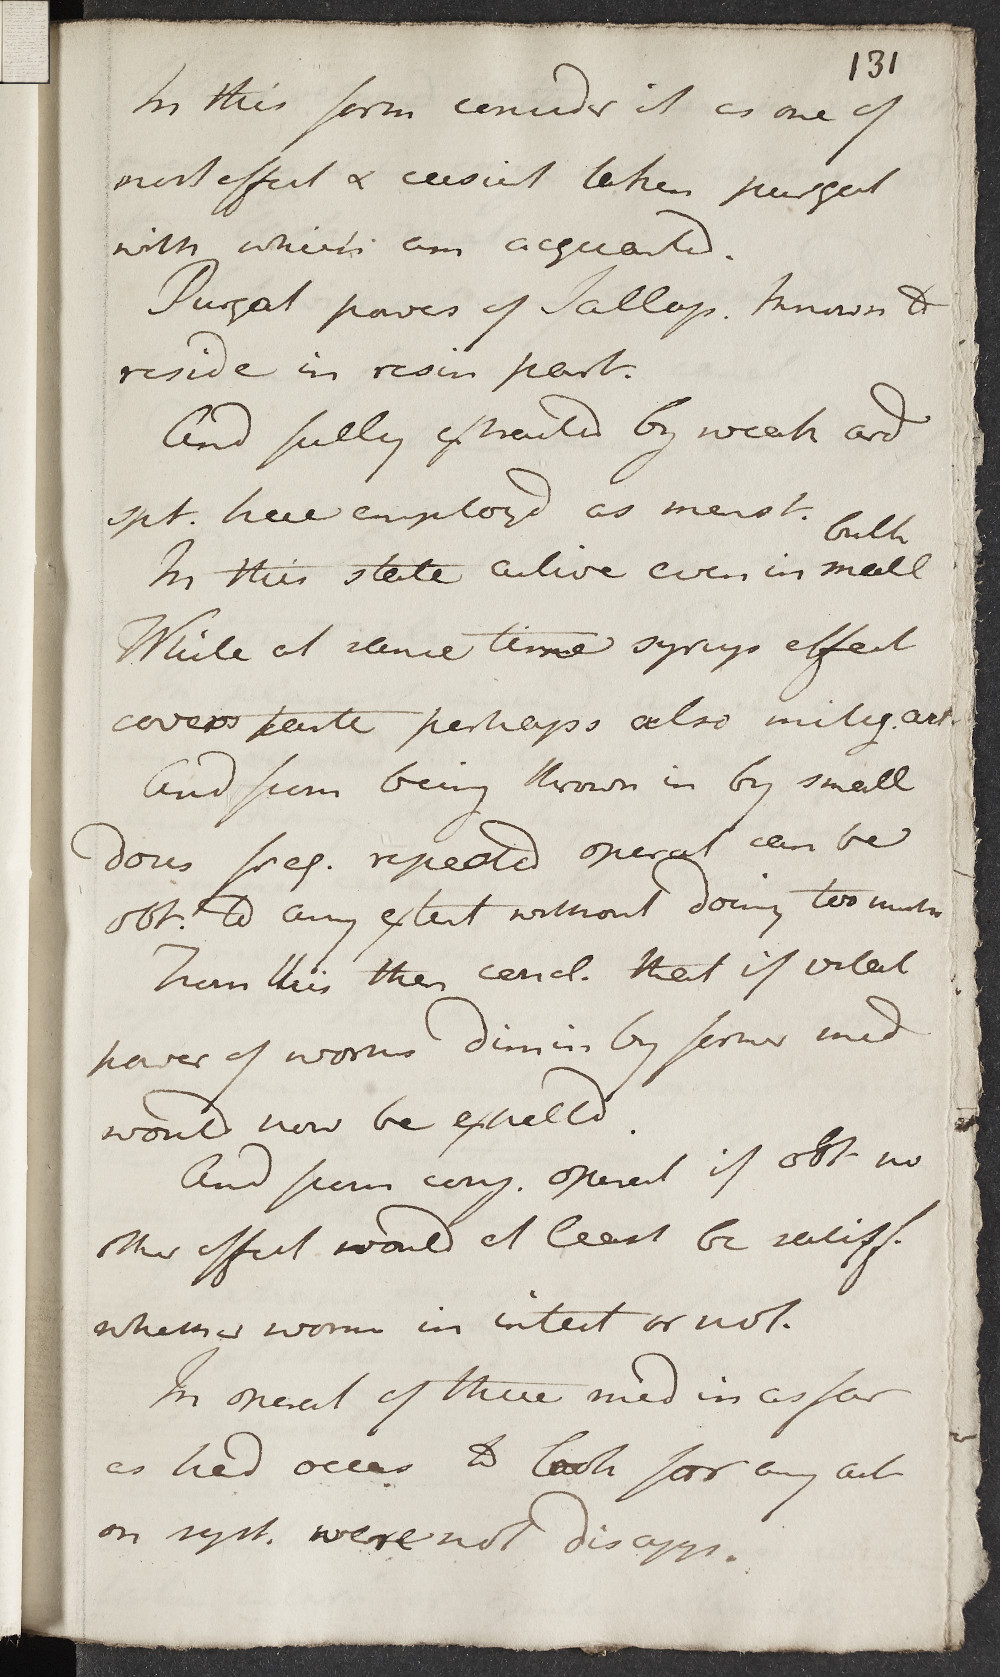 131
In this form consider it as one of
most effect & easiest taken purgat
with which am acquanted.
Purgat power of Jallap. known to
reside in resin part.
And fully extracted by weak ard
spt. here employd as menst.
bulk
In this state active even in small
While at same time syrup effect
covers taste perhaps also mitig. act.
And from being thrown in by small
doses freq. repeated operat can be
obt. to any extent without doing too much
From this then concl. that if vital
power of worms dimin by former med
would now be expelld.
And from cory. operat if obt no
other effect would at least be satisf.
whether worm in intest or not.
In operat of these med in as far
as had occas to look for any act
on syst. were not disapp.